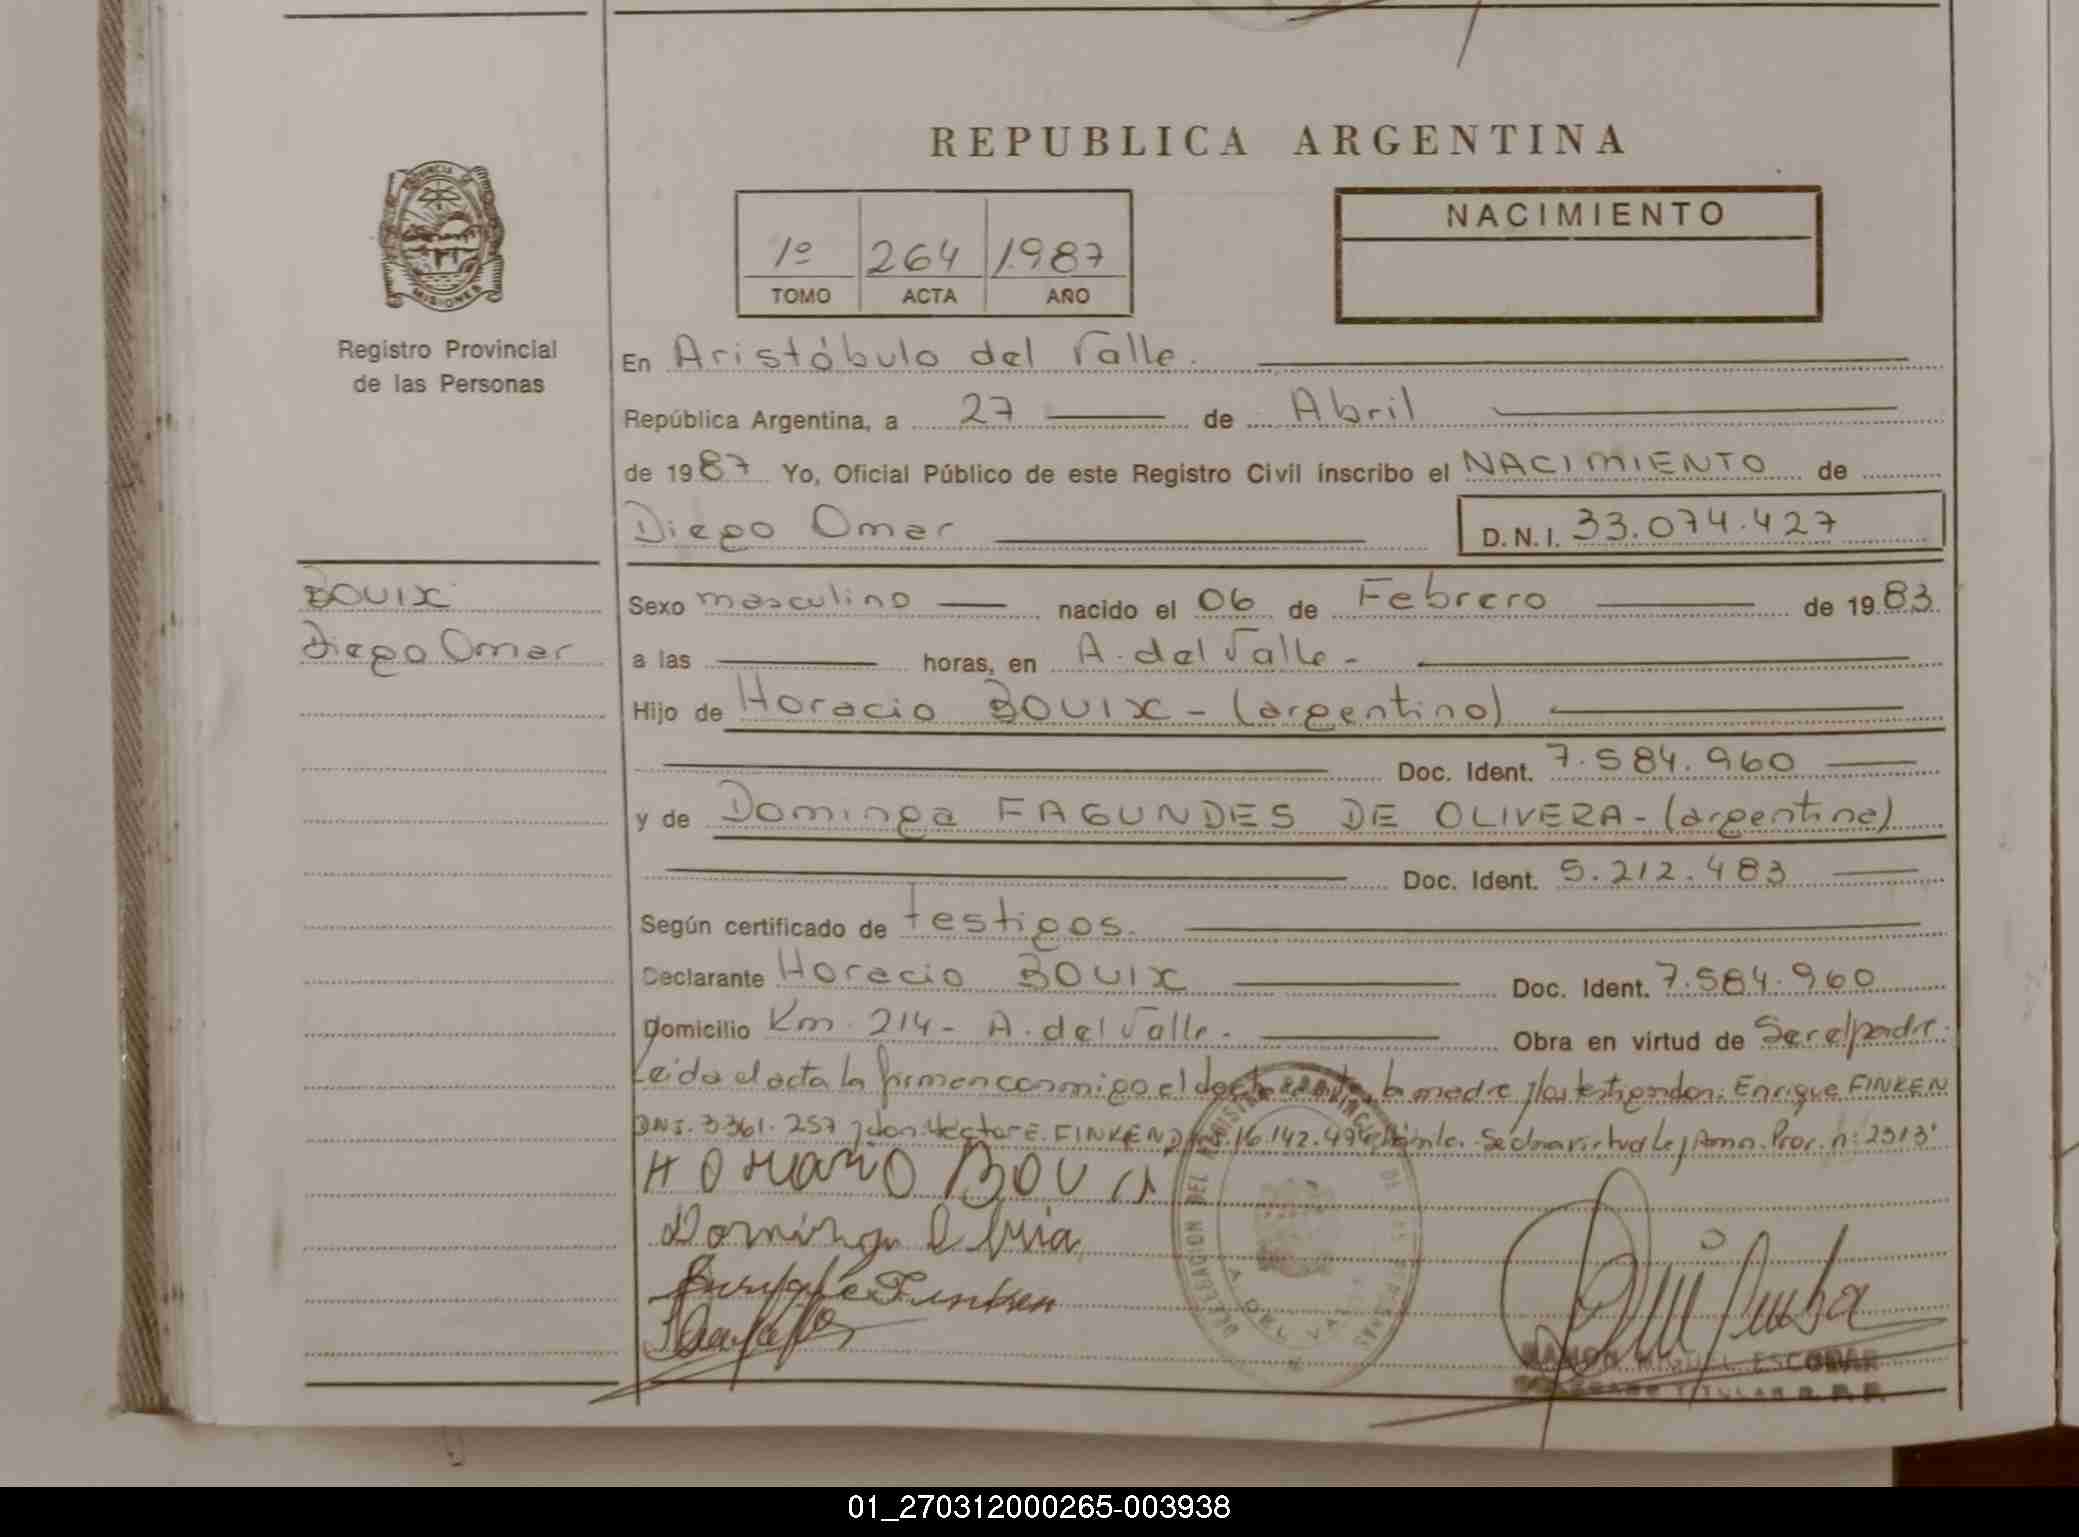 REPUBLICA ARGENTINA
PROVINCIA DE
MISIONES
Registro Provincial
de las Personas
1º 264 1987
TOMO ACTA AÑO
NACIMIENTO
En Aristóbulo del Valle.
República Argentina, a 27 de Abril
de 1987 Yo, Oficial Público de este Registro Civil inscribo el NACIMIENTO de
Diego Omar
D.N.I. 33.074.427
BOUIX
Diego Omar
Sexo masculino nacido el 06 de Febrero de 1983
a las horas, en A. del Valle-
Hijo de Horacio BOUIX - (argentino)
Doc. Ident. 7.584.960
y de Dominga FAGUNDES DE OLIVERA - (argentina)
Doc. Ident. 5.212.483
Según certificado de testigos.
Declarante Horacio BOUIX Doc. Ident. 7.584.960
Domicilio Km. 214 - A. del Valle - Obra en virtud de Ser el padre.
Leída el acta la firman conmigo el declarante, la madre y los testigos don: Enrique FINKEN
DNI. 3361.257 y don: Hector E. FINKEN 16.142.474 Ley Prov. n: 2313
Horacio Bouix
Dominga
Enrique Finken
DELEGACION DEL REGISTRO PROVINCIAL DE LAS PERSONAS
A. DEL VALLE
RAMON MIGUEL ESCOBAR
DELEGADO TITULAR R.P.P.
01_270312000265-003938